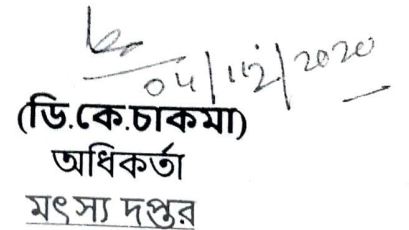 04/12/2020
(ডি.কে.চাকমা)
অধিকর্তা
মৎস্য দপ্তর